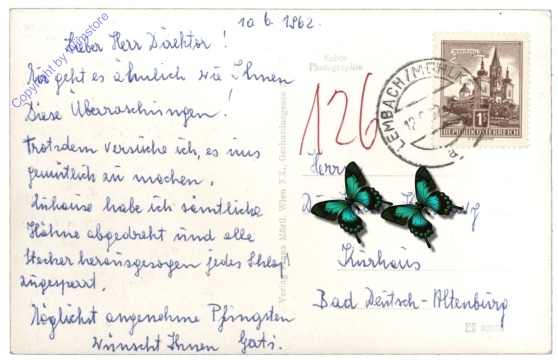 10. 6. 1962.
Lieber Herr Direktor!
Mir geht es ähnlich wie Ihnen
Diese Überaschungen!
Trotzdem versuche ich, es uns
gemütlich zu machen.
Zuhause habe ich sämtliche
Hähne abgedreht und alle
Stecher herausgezogen jedes Schloß
zugesperrt.
Möglichst angenehme Pfingsten
wünscht Ihnen Gati.
Copyright by filmstore
Echte
Photographie
126
LEMBACH/MÜHLK
12.
MARIAZELL
1S
REPUBLIK ÖSTERREICH
Verlag Franz Mörtl, Wien XX., Gerhardusgasse
Herrn
Kurhaus
Bad Deutsch-Altenburg